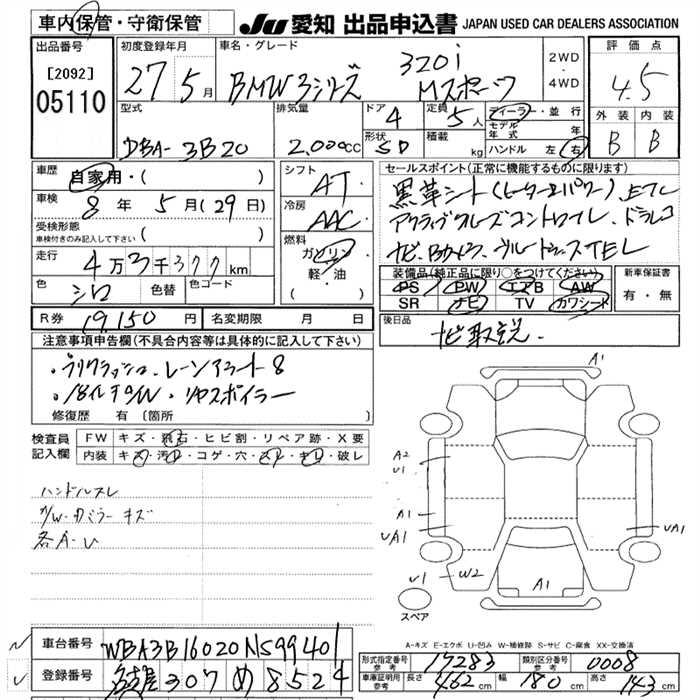 車内保管・守衛保管 JU 愛知 出品申込書 JAPAN USED CAR DEALERS ASSOCIATION
出品番号 初度登録年月 車名・グレード 評価点
[2092] 27 5月 BMW3シリーズ 320i 2WD
05110 Mスポーツ ・4WD 4.5
型式 排気量 ドア 4 定員 5人 ディーラー・並行 外装 内装
モデル年式 年
DBA-3B20 2,000cc 形状 SD 積載 kg ハンドル 左・右 B B
車歴 自家用・( ) シフト AT セールスポイント(正常に機能するものに限ります)
車検 8年 5月(29日) 冷房 AAC 黒革シート(ヒーター&パワー)
受検形態 アクティブクルーズコントロール、ドラレコ
車検付きのみ記入して下さい ( )
走行 4万3千377km 燃料 ガソリン ナビ、Bカメラ、ブルートゥースTEL
軽・油
( )
色 シロ 色替 色コード 装備品(純正品に限り○をつけてください) 新車保証書
PS PW エアB AW 有・無
SR ナビ TV カワシート
R券 19,150円 名変期限 月 日 後日品
ナビ取説
注意事項申告欄(不具合内容等は具体的に記入して下さい)
・レーンアラート
・18インチAW・リアスポイラー
修復歴 有〔箇所 〕
検査員 FW キズ・飛石・ヒビ割・リペア跡・X要
記入欄 内装 キズ・汚れ・コゲ・穴・スレ・キレ・破レ
ハンドルスレ
A/W・Cミラーキズ
各A-U
A1
A2
U1
A1
UA1
UA1
U1
W2
A1
スペア
A-キズ E-エクボ U-凹み W-補修跡 S-サビ C-腐食 XX-交換済
車台番号 WBA3B16020NS99401
登録番号 名古屋 307 め 8524
形式指定番号 参考 17283 類別区分番号 参考 0008
車庫証明用 参考 長さ 462cm 幅 180cm 高さ 143cm